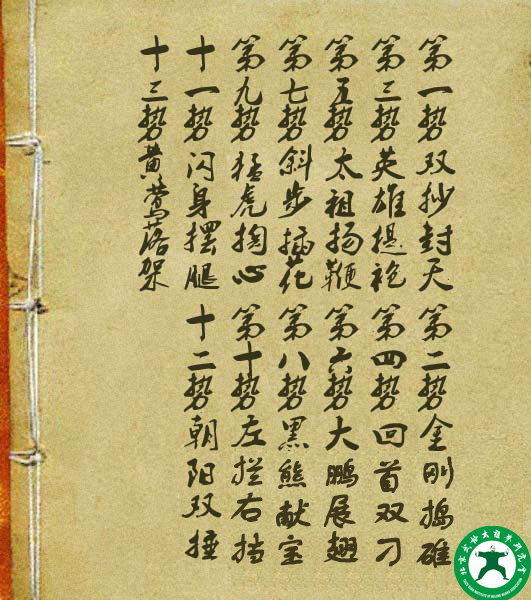 第一势双抄封天 第二势金刚捣碓
第三势英雄提袍 第四势回首双刁
第五势太祖扬鞭 第六势大鹏展翅
第七势斜步插花 第八势黑熊献宝
第九势猛虎掏心 第十势左拦右挡
十一势闪身摆腿 十二势朝阳双捶
十三势黄莺落架